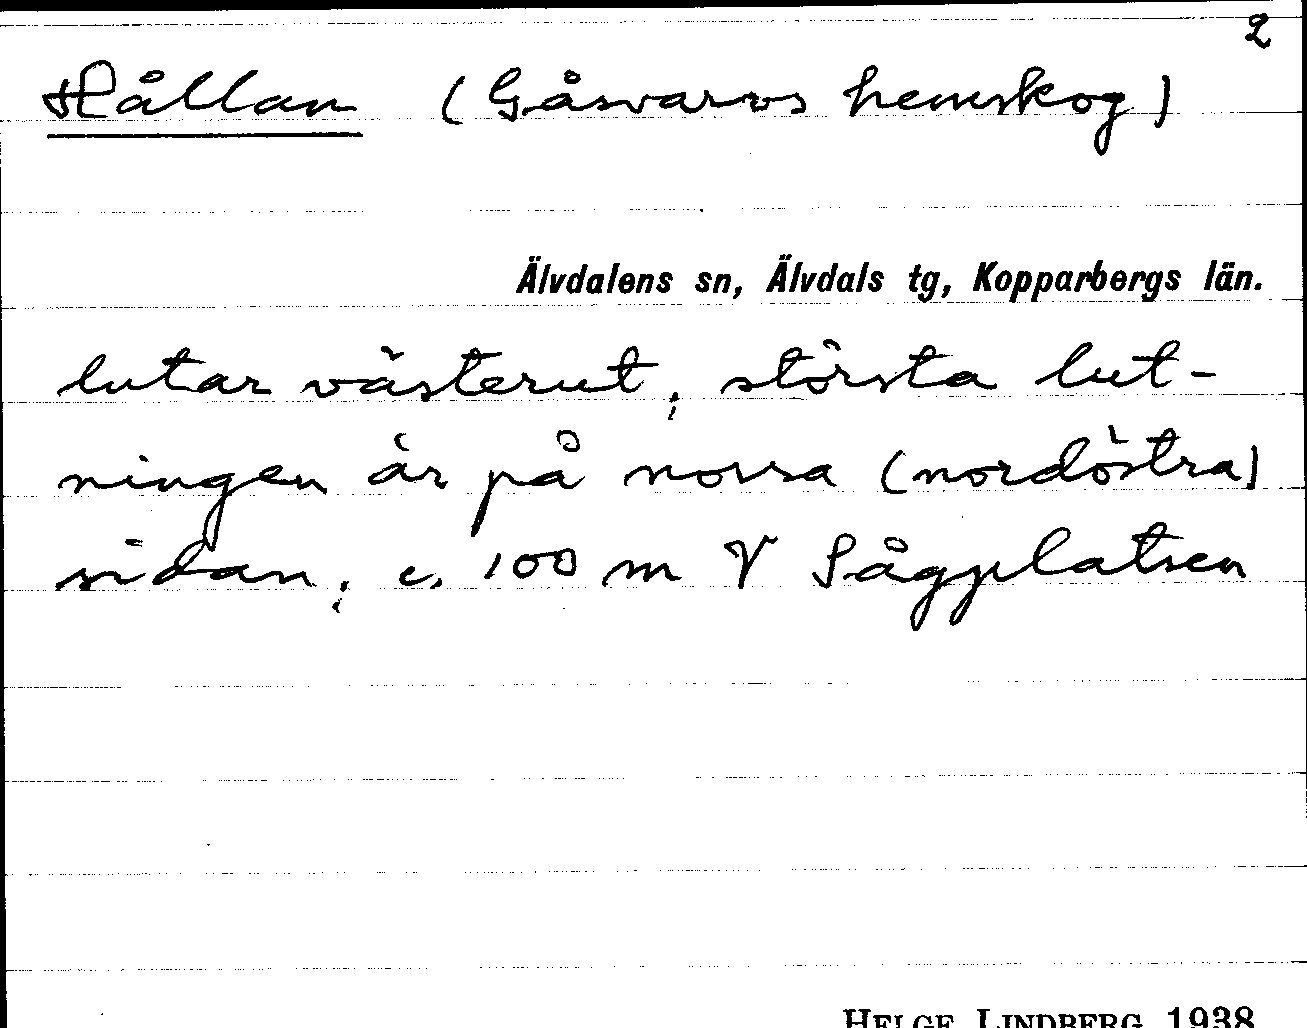 2
Hållan (Gåsvarvs hemskog)
Älvdalens sn, Älvdals tg, Kopparbergs län.
lutar västerut; största lut-
ningen är på norra (nordöstra)
sidan; c. 100 m V Sågplatsen
HELGE LINDBERG 1938